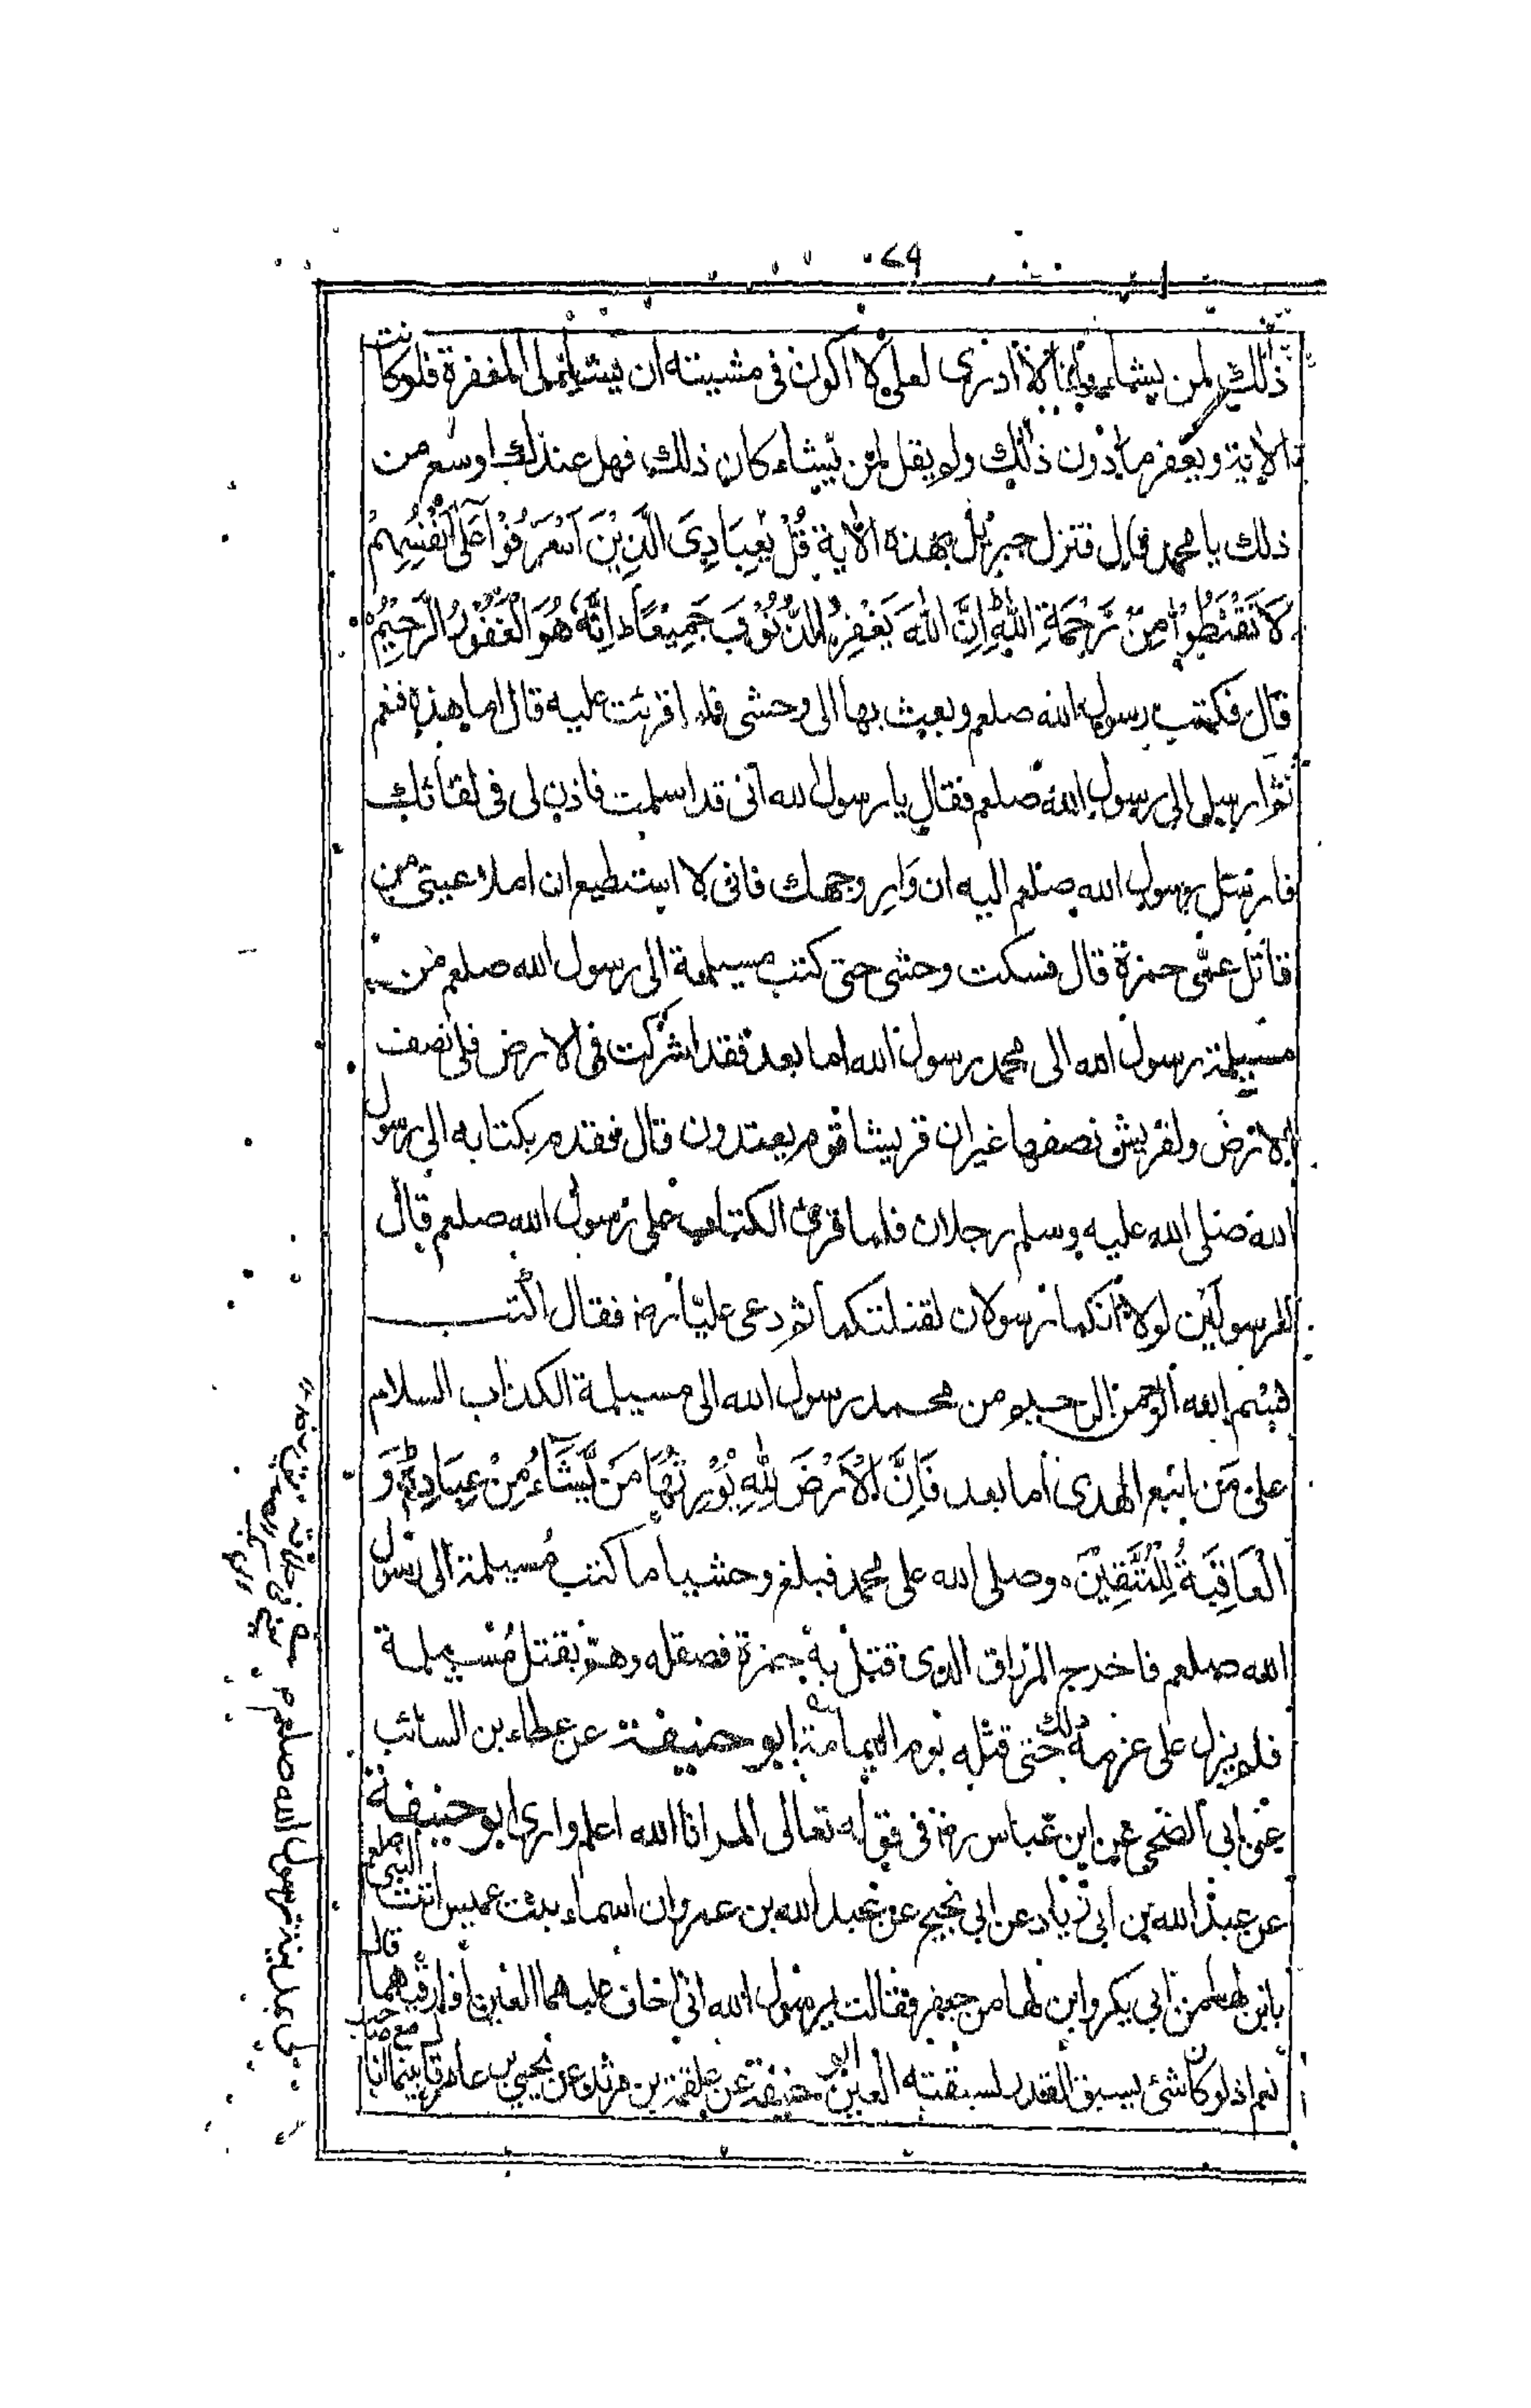 ٢٩
ذلك لمن يشاء وانا لا ادرى لعلى لا اكون فى مشيئته ان يشاء لى المغفرة فلو كانت
الاية ويغفر ما دون ذلك ولم يقل لمن يشاء كان ذلك فهل عندك اوسع من
ذلك يا محمد قال فنزل جبرئيل بهذه الاية قُلْ يٰعِبَادِىَ الَّذِيْنَ اَسْرَفُوْا عَلٰى اَنْفُسِهِمْ
لَا تَقْنَطُوْا مِنْ رَّحْمَةِ اللّٰهِ اِنَّ اللّٰهَ يَغْفِرُ الذُّنُوْبَ جَمِيْعًا ط اِنَّهٗ هُوَ الْغَفُوْرُ الرَّحِيْمُ
قال فكتب رسول الله صلعم وبعث بها الى وحشى فلما قرئت عليه قال اما هذه فنعم
ثم ارسل الى رسول الله صلعم فقال يا رسول الله انى قد اسلمت فاذن لى فى لقائك
فارسل رسول الله صلعم اليه ان وَارِ وجهك فانى لا استطيع ان املاء عينى من
قاتل عمّى حمزة قال فسكت وحشى حتى كتب مسيلمة الى رسول الله صلعم من
مسيلمة رسول الله الى محمد رسول الله اما بعد فقد اشركت فى الارض فلى نصف
الارض ولقريش نصفها غير ان قريشا قوم يعتدون قال فقدم بكتابه الى رسول
الله صلى الله عليه وسلم رجلان فلما قرئ الكتاب على رسول الله صلعم قال
للرسولَيْن لولا انكما رسولان لقتلتكما ثم دعى عليّا رض فقال اكتب
بسم الله الرحمن الرحيم من محمد رسول الله الى مسيلمة الكذاب السلام
على مَن اتبع الهدى اما بعد فَاِنَّ الْاَرْضَ لِلّٰهِ يُوْرِثُهَا مَنْ يَّشَآءُ مِنْ عِبَادِهٖ ط وَ
الْعَاقِبَةُ لِلْمُتَّقِيْنَ ٥ وصلى الله على محمد فبلغ وحشيا ما كتب مُسيلمة الى رسول
الله صلعم فاخرج المزراق الذى قتل به حمزة فصقله وهمّ بقتل مُسيلمة
فلم يزل على عزمه ذلك حتى قتله يوم اليمامة ابو حنيفة عن عطاء بن السائب
عن ابى الضحى عن ابن عباس رض فى قوله تعالى الم انا الله اعلم وارى ابو حنيفة
عن عبد الله بن ابى زياد عن ابى نجيح عن عبد الله بن عمرو ان اسماء بنت عميس اتت النبى صلعم
بابن لها من ابى بكر وابن لها من جعفر فقالت يرسول الله انى اخاف عليهما العين افارقيهما قال
نعم اذ لو كان شئ يسبق القدر لسبقته العين ابو حنيفة عن علقمة بن مرثد عن يحيى بن عامر قال بينما انا مع صاحب